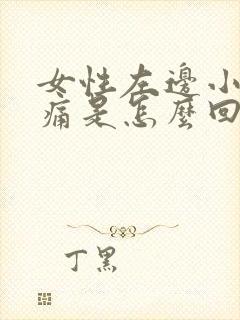 女性左邊小
痛是怎麼回
丁黑